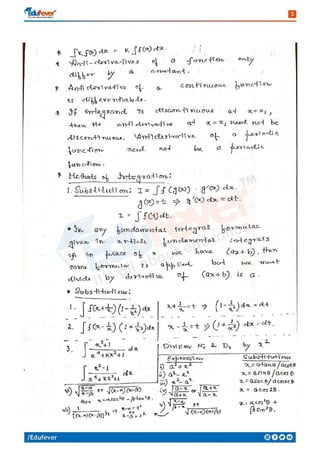 Edufever
3
* ∫k f(x) dx = k ∫f(x) dx.
* Anti-derivatives of a function only
differ by a constant.
* Anti derivative of a continuous function
is differentiable.
* If integrand is discontinuous at x = x₁,
then its anti derivative at x = x₁ need not be
discontinuous. Antiderivative of a periodic
function need not be a periodic
function.
* Methods of Integration:
1. Substitution: I = ∫f(g(x)) · g'(x) dx.
g(x) = t ⇒ g'(x) dx = dt.
I = ∫f(t) dt.
* In any fundamental integral formulae
given in article fundamental integrals
if in place of x we have (ax+b), then
same formula is applied but we must
divide by derivative of (ax+b) i.e. a.
* Substitution:
1. ∫f(x+1/x)(1-1/x²)dx x+1/x = t ⇒ (1-1/x²)dx = dt
2. ∫f(x-1/x)(1+1/x²)dx x-1/x = t ⇒ (1+1/x²)dx = dt.
3. x²+1 / x⁴+kx²+1 dx Division by x²
∫ x²-1 / x⁴+kx²+1 dx
Expression Substitution
i) a²+x² x = a tanθ / a cotθ
ii) a²-x² x = a sinθ / a cosθ
iii) x²-a² x = a secθ / a cosecθ
x = a cos2θ.
/Edufever